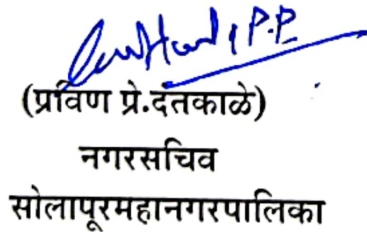 P.P
(प्रविण प्रे.दंतकाळे)
नगरसचिव
सोलापूरमहानगरपालिका